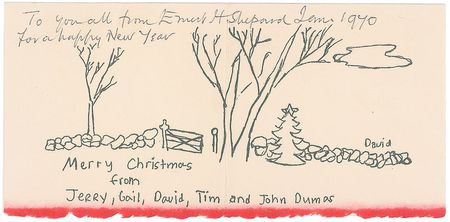 To you all from Ernest H Shepard Jan. 1970
for a happy New Year
David
Merry Christmas
from
Jerry, Gail, David, Tim and John Dumas